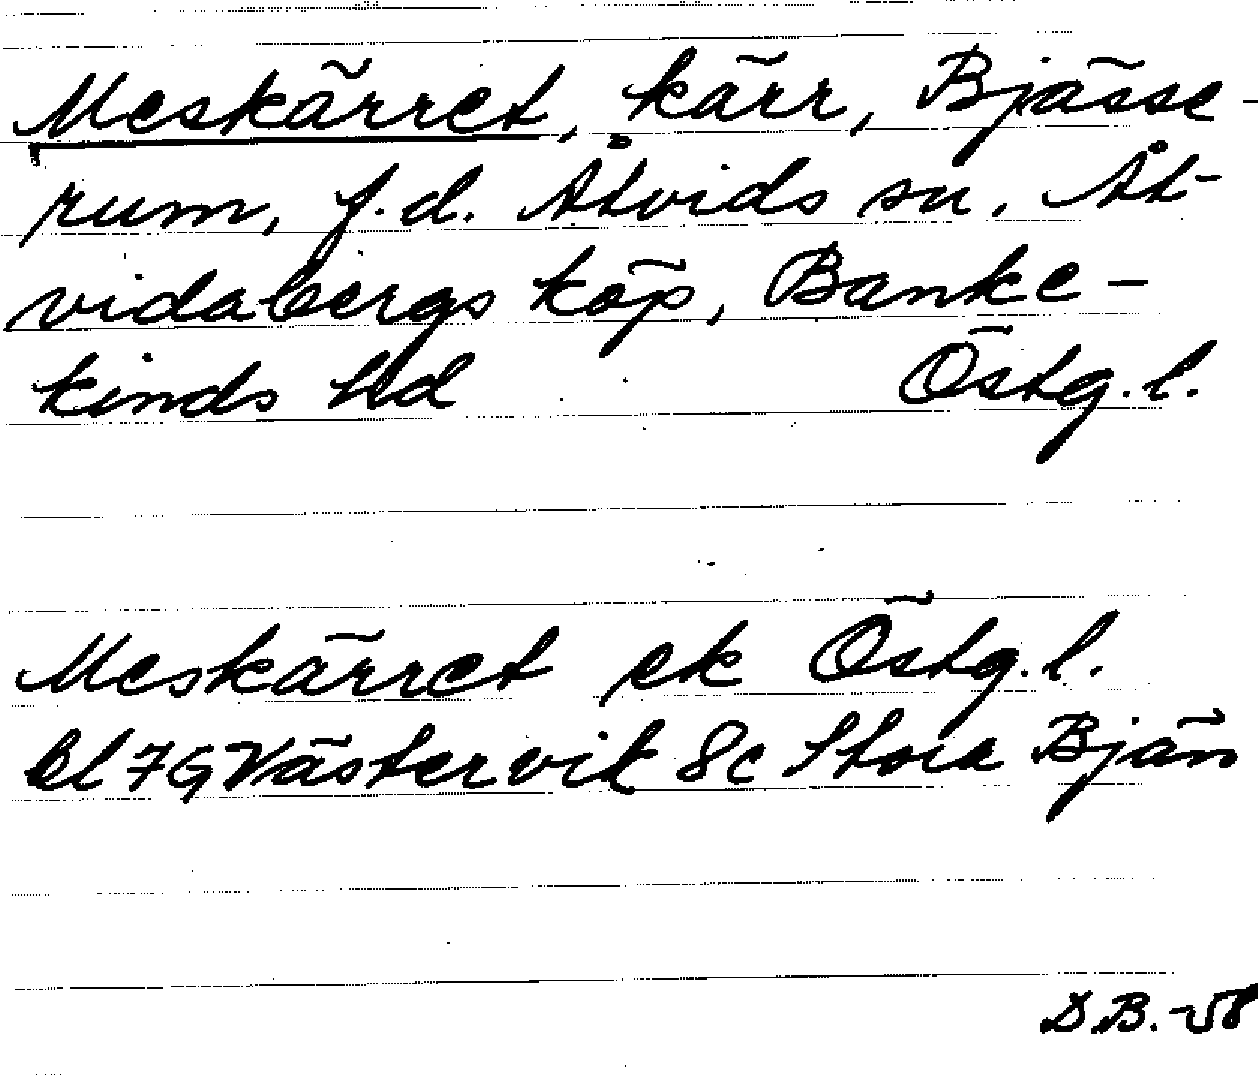 Meskärret, kärr, Bjässe-
rum, f.d. Åtvids sn, Åt-
vidabergs köp, Banke-
kinds hd Östg.l.
Meskärret ek Östg.l.
bl 7G Västervik 8c Stora Bjän
D.B.-58